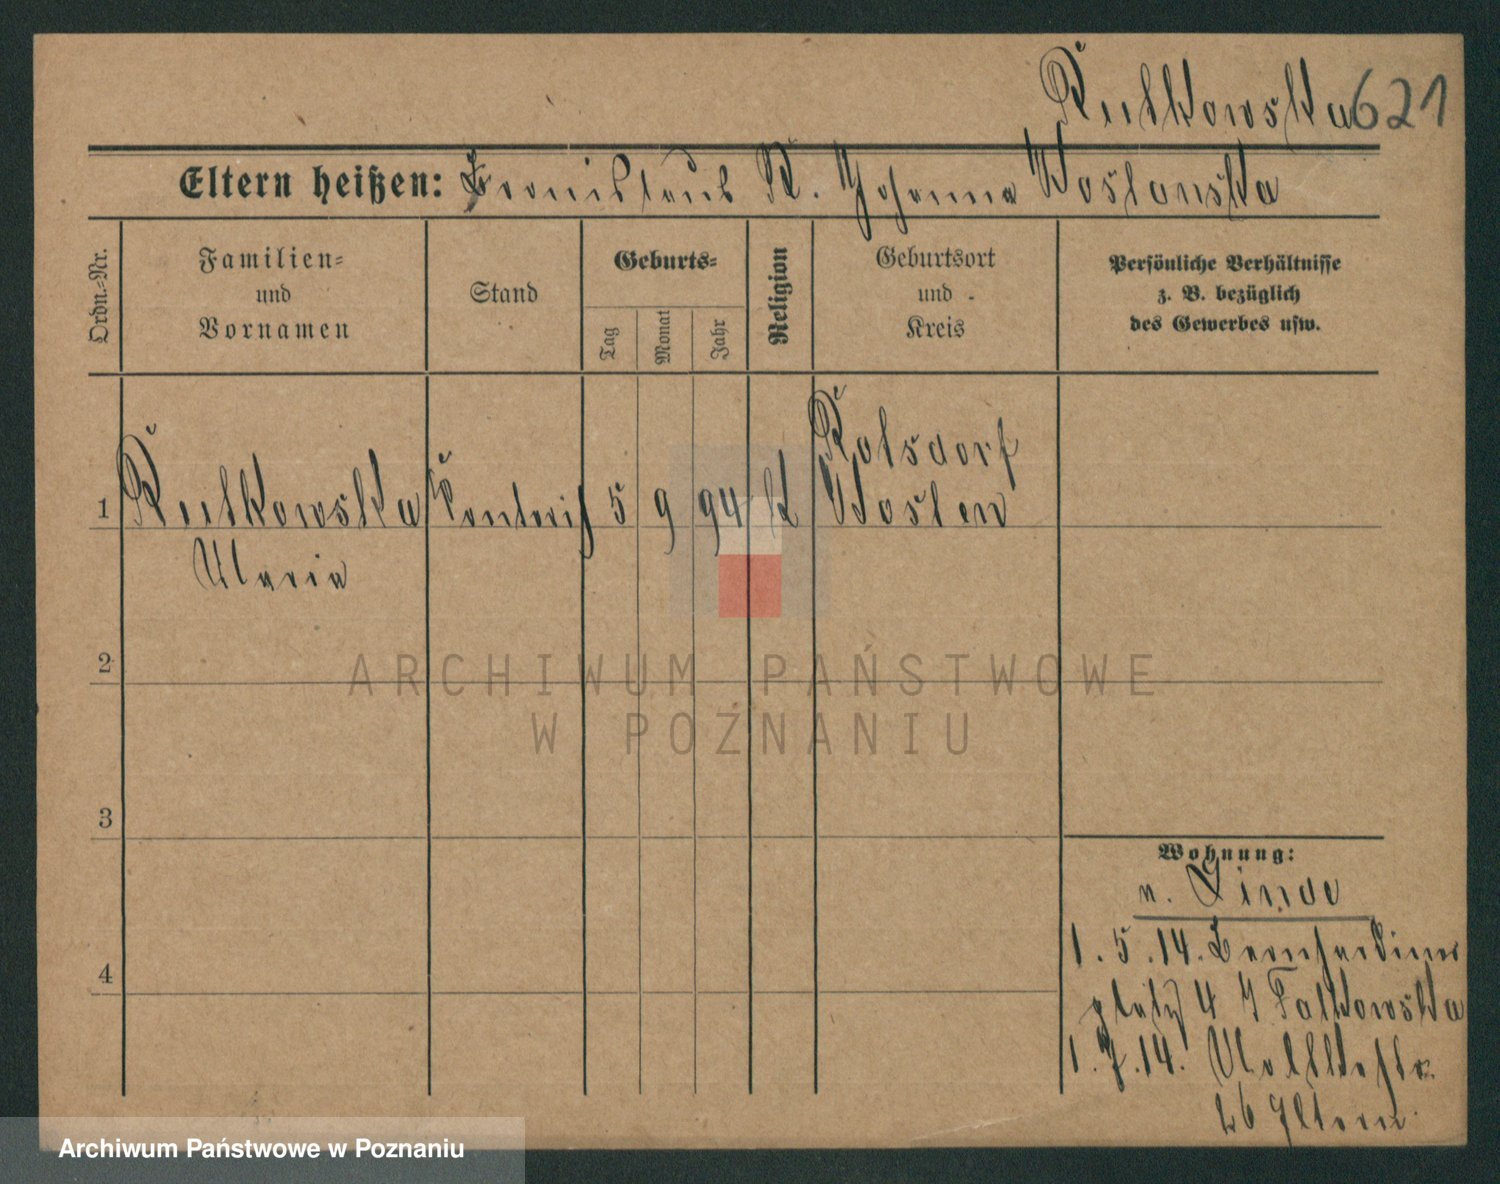 Rutkowska 621
Eltern heißen: Bronislaus R. Johanna
Ordn.-Nr.
Familien-
und
Vornamen
Stand
Geburts-
Tag
Monat
Jahr
Religion
Geburtsort
und
Kreis
Persönliche Verhältnisse
z. B. bezüglich
des Gewerbes usw.
1 Rutkowska 5 9 94 k
Maria
2
3
4
Wohnung:
1.5.14. Bernhardiner
platz 4 Falkowska
1.7.14.
26 Eltern
ARCHIWUM PAŃSTWOWE
W POZNANIU
Archiwum Państwowe w Poznaniu